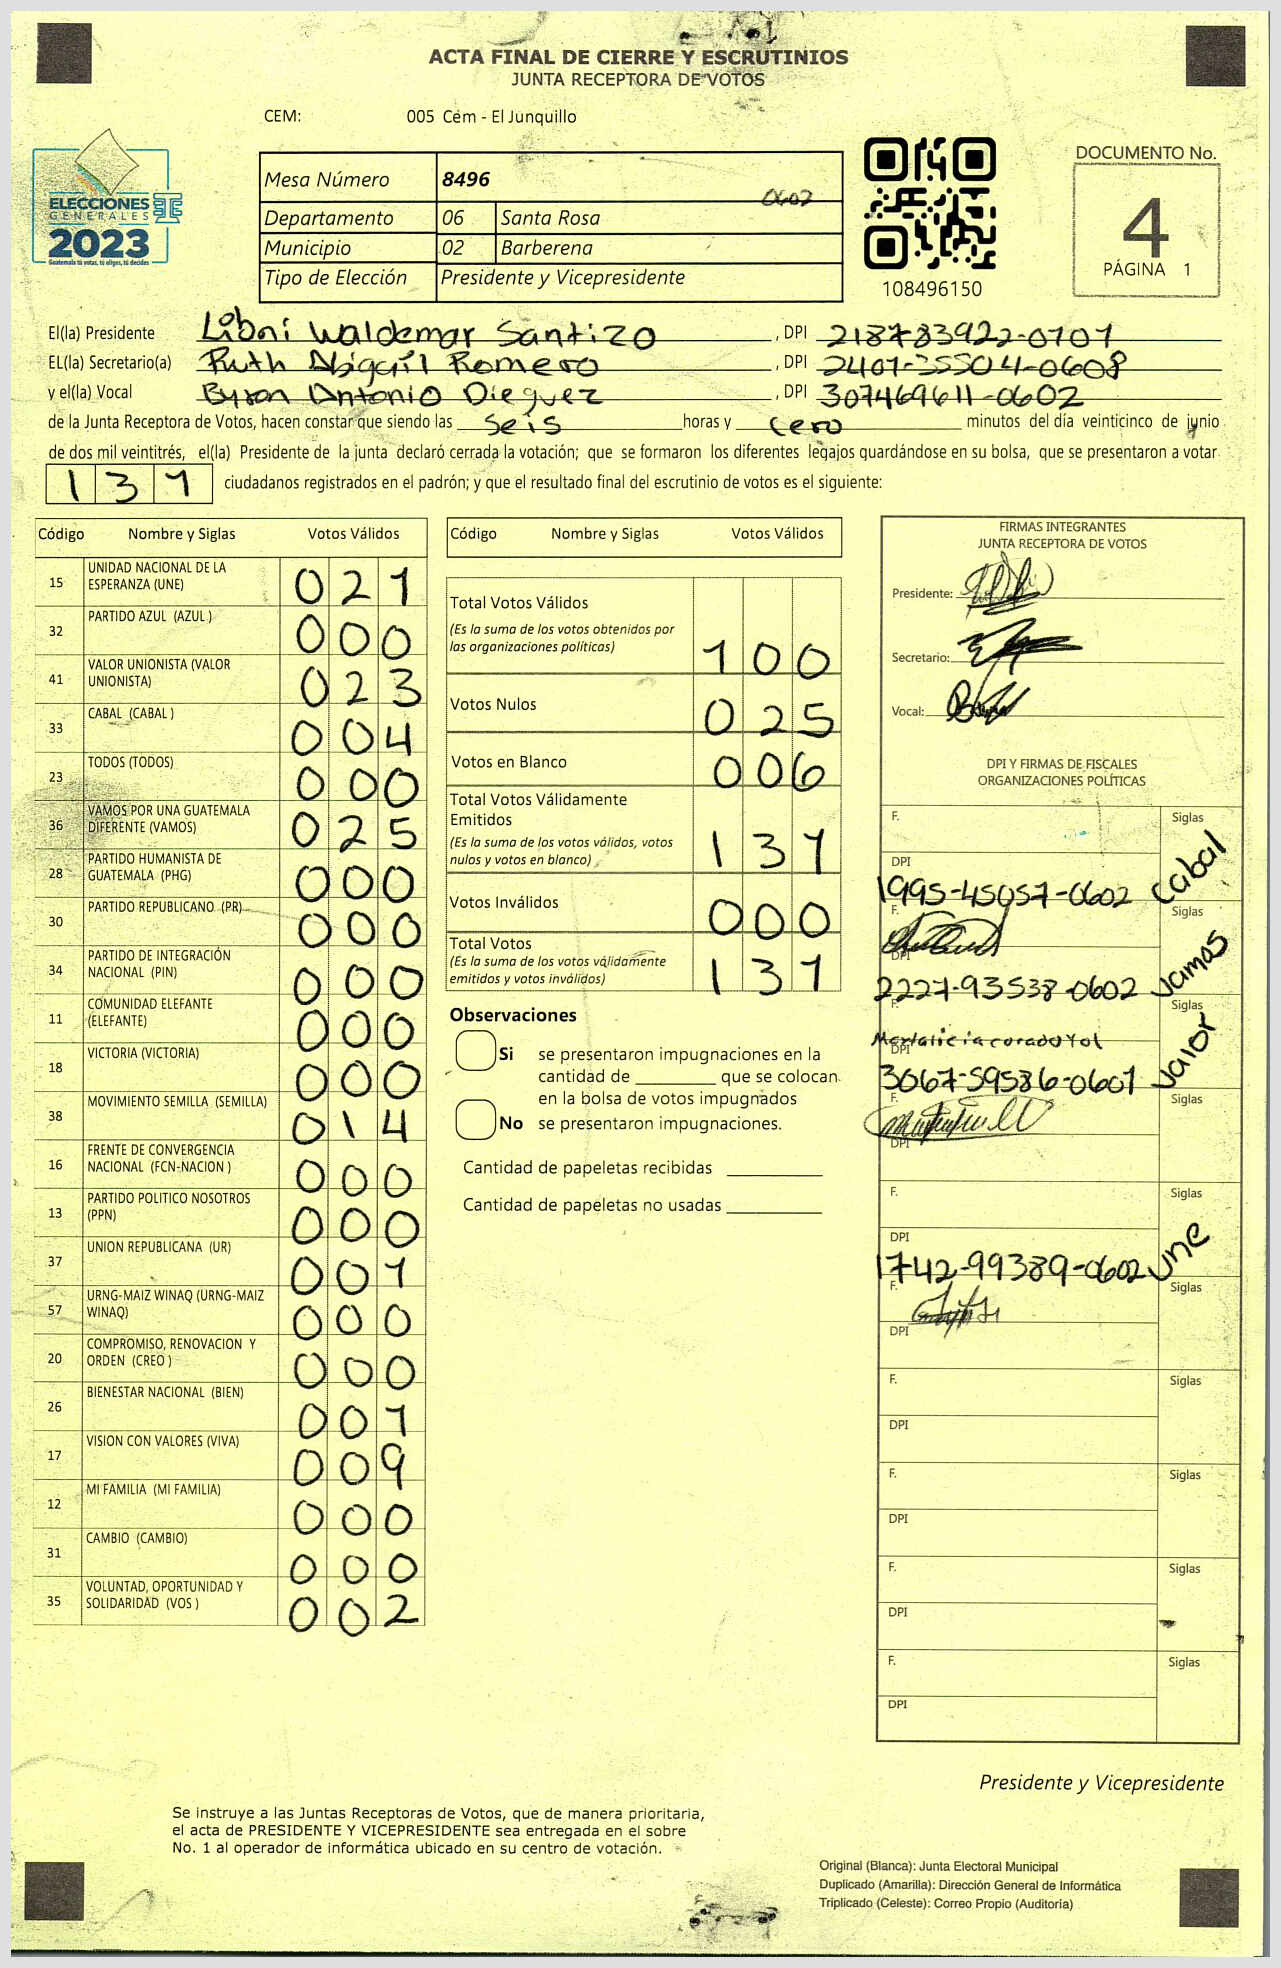 ACTA FINAL DE CIERRE Y ESCRUTINIOS
JUNTA RECEPTORA DE VOTOS
CEM: 005 Cem - El Junquillo
ELECCIONES
GENERALES
2023
Guatemala tú votas, tú eliges, tú decides
Mesa Número 8496
0602
Departamento 06 Santa Rosa
Municipio 02 Barberena
Tipo de Elección Presidente y Vicepresidente
108496150
DOCUMENTO No.
4
PÁGINA 1
El(la) Presidente Libni Waldemar Santizo , DPI 218783922-0701
EL(la) Secretario(a) Ruth Abigail Romero , DPI 2401-35504-0608
y el(la) Vocal Byron Antonio Dieguez , DPI 307469611-0602
de la Junta Receptora de Votos, hacen constar que siendo las seis horas y cero minutos del día veinticinco de junio
de dos mil veintitrés, el(la) Presidente de la junta declaró cerrada la votación; que se formaron los diferentes legajos guardándose en su bolsa, que se presentaron a votar
131 ciudadanos registrados en el padrón; y que el resultado final del escrutinio de votos es el siguiente:
Código Nombre y Siglas Votos Válidos
15 UNIDAD NACIONAL DE LA ESPERANZA (UNE) 021
32 PARTIDO AZUL (AZUL ) 000
41 VALOR UNIONISTA (VALOR UNIONISTA) 023
33 CABAL (CABAL ) 004
23 TODOS (TODOS) 000
36 VAMOS POR UNA GUATEMALA DIFERENTE (VAMOS) 025
28 PARTIDO HUMANISTA DE GUATEMALA (PHG) 000
30 PARTIDO REPUBLICANO (PR) 000
34 PARTIDO DE INTEGRACIÓN NACIONAL (PIN) 000
11 COMUNIDAD ELEFANTE (ELEFANTE) 000
18 VICTORIA (VICTORIA) 000
38 MOVIMIENTO SEMILLA (SEMILLA) 014
16 FRENTE DE CONVERGENCIA NACIONAL (FCN-NACION ) 000
13 PARTIDO POLITICO NOSOTROS (PPN) 000
37 UNION REPUBLICANA (UR) 001
57 URNG-MAIZ WINAQ (URNG-MAIZ WINAQ) 000
20 COMPROMISO, RENOVACION Y ORDEN (CREO ) 000
26 BIENESTAR NACIONAL (BIEN) 001
17 VISION CON VALORES (VIVA) 009
12 MI FAMILIA (MI FAMILIA) 000
31 CAMBIO (CAMBIO) 000
35 VOLUNTAD, OPORTUNIDAD Y SOLIDARIDAD (VOS ) 002
Código Nombre y Siglas Votos Válidos
Total Votos Válidos
(Es la suma de los votos obtenidos por
las organizaciones políticas) 100
Votos Nulos 025
Votos en Blanco 006
Total Votos Válidamente
Emitidos
(Es la suma de los votos válidos, votos
nulos y votos en blanco) 131
Votos Inválidos 000
Total Votos
(Es la suma de los votos válidamente
emitidos y votos inválidos) 131
Observaciones
Si se presentaron impugnaciones en la
cantidad de ________ que se colocan
en la bolsa de votos impugnados
No se presentaron impugnaciones.
Cantidad de papeletas recibidas
Cantidad de papeletas no usadas
FIRMAS INTEGRANTES
JUNTA RECEPTORA DE VOTOS
Presidente:
Secretario:
Vocal:
DPI Y FIRMAS DE FISCALES
ORGANIZACIONES POLÍTICAS
F. Siglas
DPI
1995-45057-0602 Cabal
F. Siglas
DPI
2227-93538-0602 Vamos
F. Siglas
DPI
3067-59586-0601 Valor
F. Siglas
DPI
F. Siglas
DPI
1742-99389-0602 Une
F. Siglas
DPI
F. Siglas
DPI
F. Siglas
DPI
F. Siglas
DPI
F. Siglas
DPI
Presidente y Vicepresidente
Se instruye a las Juntas Receptoras de Votos, que de manera prioritaria,
el acta de PRESIDENTE Y VICEPRESIDENTE sea entregada en el sobre
No. 1 al operador de informática ubicado en su centro de votación.
Original (Blanca): Junta Electoral Municipal
Duplicado (Amarilla): Dirección General de Informática
Triplicado (Celeste): Correo Propio (Auditoría)